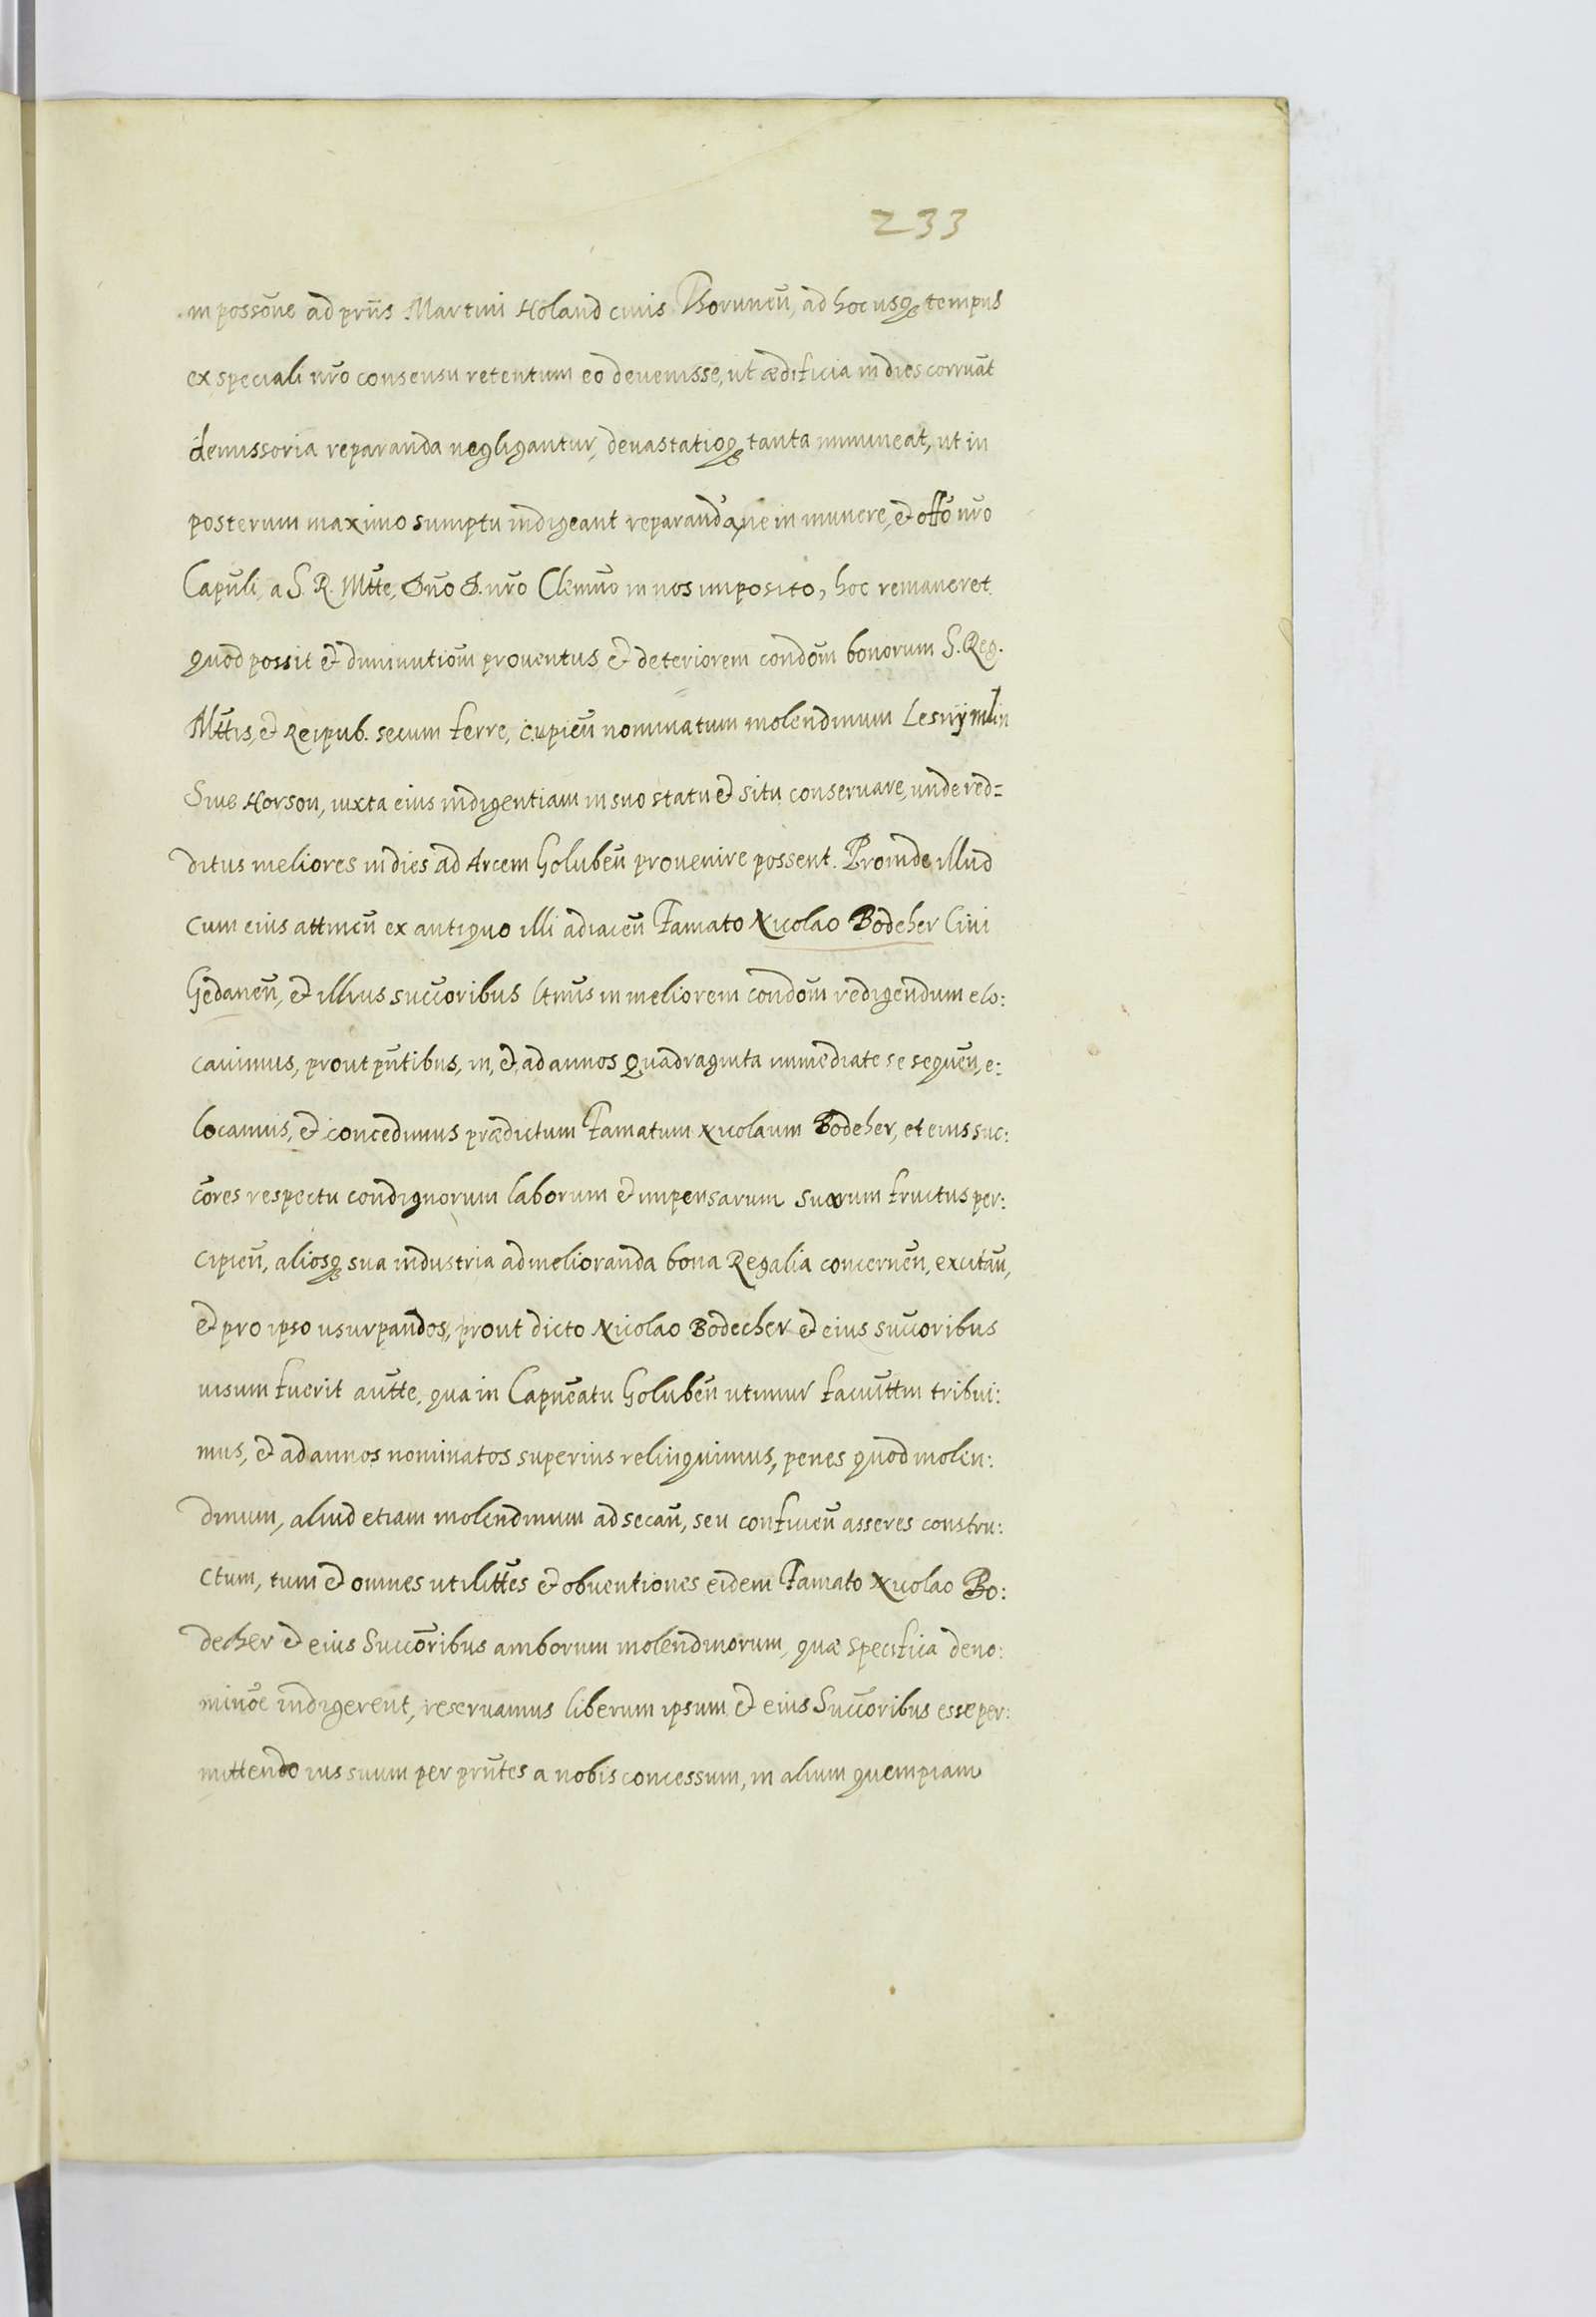 233
in possoñe ad prñs Martini Holand civis Thoruneñ, ad hoc usq₃ tempus
ex speciali nr̃o consensu retentum eo devenisse, ut ædificia in dies corruãt
demissoria reparanda negligantur, devastatioq₃ tanta immineat, ut in
posterum maximo sumptu indigeant reparanda, ne in munere, et offõ nr̃o
Capñli, a S. R. Mtte, Dño D. nr̃o Clemño in nos imposito, hoc remaneret
quod possit et diminutiom̃ proventus et deteriorem condõm bonorum S. Reg.
Mttis, et Reipub. secum ferre, cupieñ nominatum molendinum Lesnÿ mlin
Sive Horson, iuxta eius indigentiam in suo statu et situ conservare, unde red=
ditus meliores in dies ad Arcem Golubeñ provenire possent. Proinde illud
cum eius attineñ ex antiquo illi adiaceñ Famato Nicolao Bodeher Civi
Gedaneñ, et illius succoribus ltmũs in meliorem condõm redigendum elo:
cavimus, prout pñtibus, in, et ad annos Quadraginta immediate se sequeñ, e:
locamus, et concedimus prædictum Famatum Nicolaum Bodeher, et eius suc:
cõres respectu condignorum laborum et impensarum suarum fructus per:
cipieñ, aliosq₃ sua industria ad melioranda bona Regalia concerneñ, excitañ,
et pro ipso usurpandos, prout dicto Nicolao Bodecher et eius succoribus
visum fuerit autte, qua in Capneatu Golubeñ utimur facultm tribui:
mus, et ad annos nominatos superius relinquimus, penes quod molen:
dinum, aliud etiam molendinum ad secañ, seu conficieñ asseres constru:
ctum, tum et omnes utilittes et obventiones eidem Famato Nicolao Bo:
decher et eius Succoribus amborum molendinorum, quæ specifica deno:
minõe indigerent, reservamus liberum ipsum et eius Succoribus esse per:
mittendo ius suum per prñtes a nobis concessum, in alium quempiam